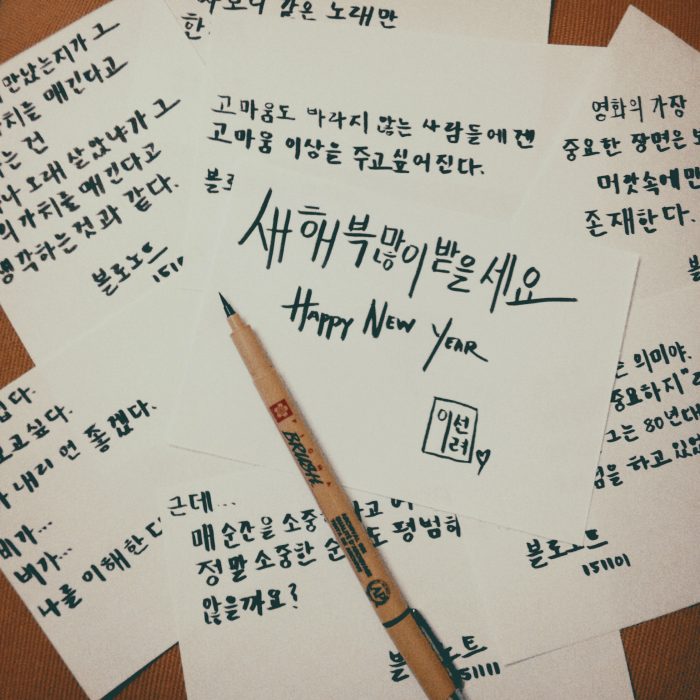 같은 노래만
한
만났는지가 그
가치를 매긴다고
는 건
나 오래 살았냐가 그
의 가치를 매긴다고
생각하는것과 같다.
블로노트
고마움도 바라지 않는 사람들에겐
고마움 이상을 주고싶어진다.
영화의 가장
중요한 장면은
머릿속에만
존재한다.
새해 복 많이 받을세요
Happy New Year
이선려
의미야.
중요하지"
그는 80년대
을 하고 있었
블로노트
151101
싶다.
보고싶다.
내리면 좋겠다.
비가...
비가...
나를 이해한다
근데...
매순간을 소중
정말 소중한 순 도 평범히
않을까요?
BRUSH